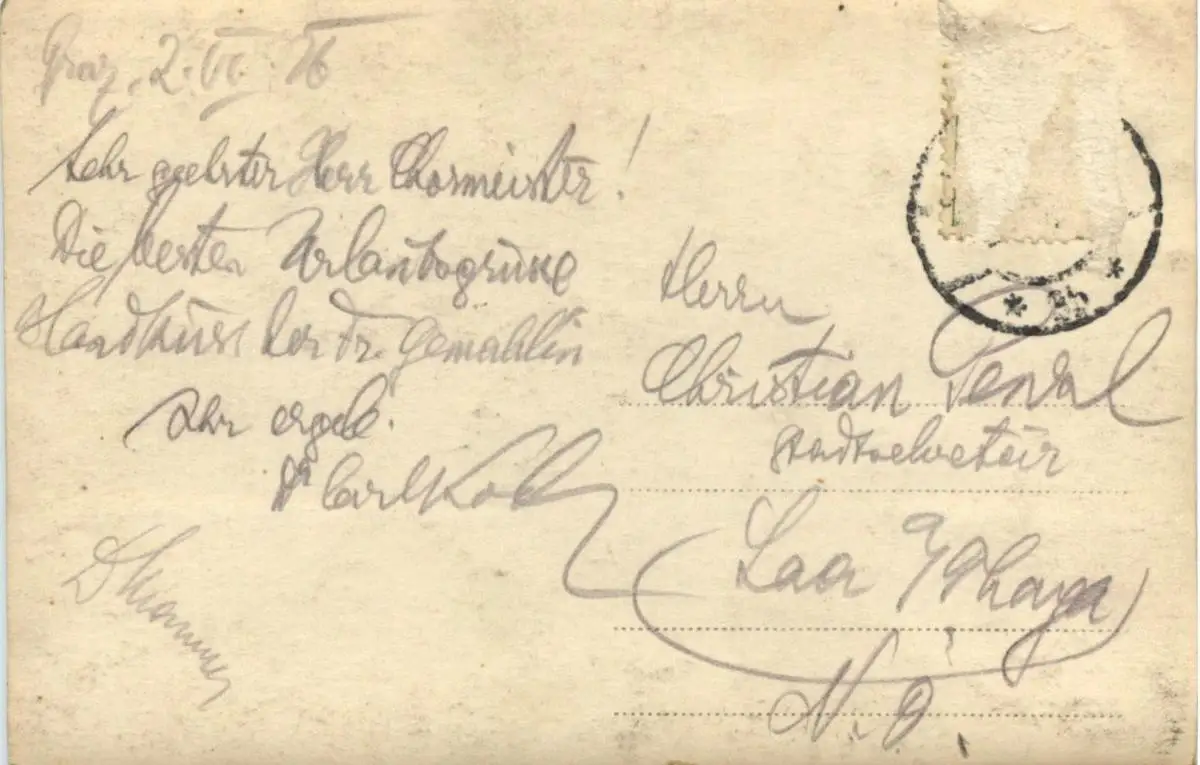 Graz, 2. VII. 26
Sehr geehrter Herr Chormeister!
Die besten Urlaubsgrüsse
Handkuss der Fr. Gemahlin
Ihr ergeb.
Dr Carl Koch
Herrn
Christian
Stadtsekretär
Laa a/Thaya
N.Ö.